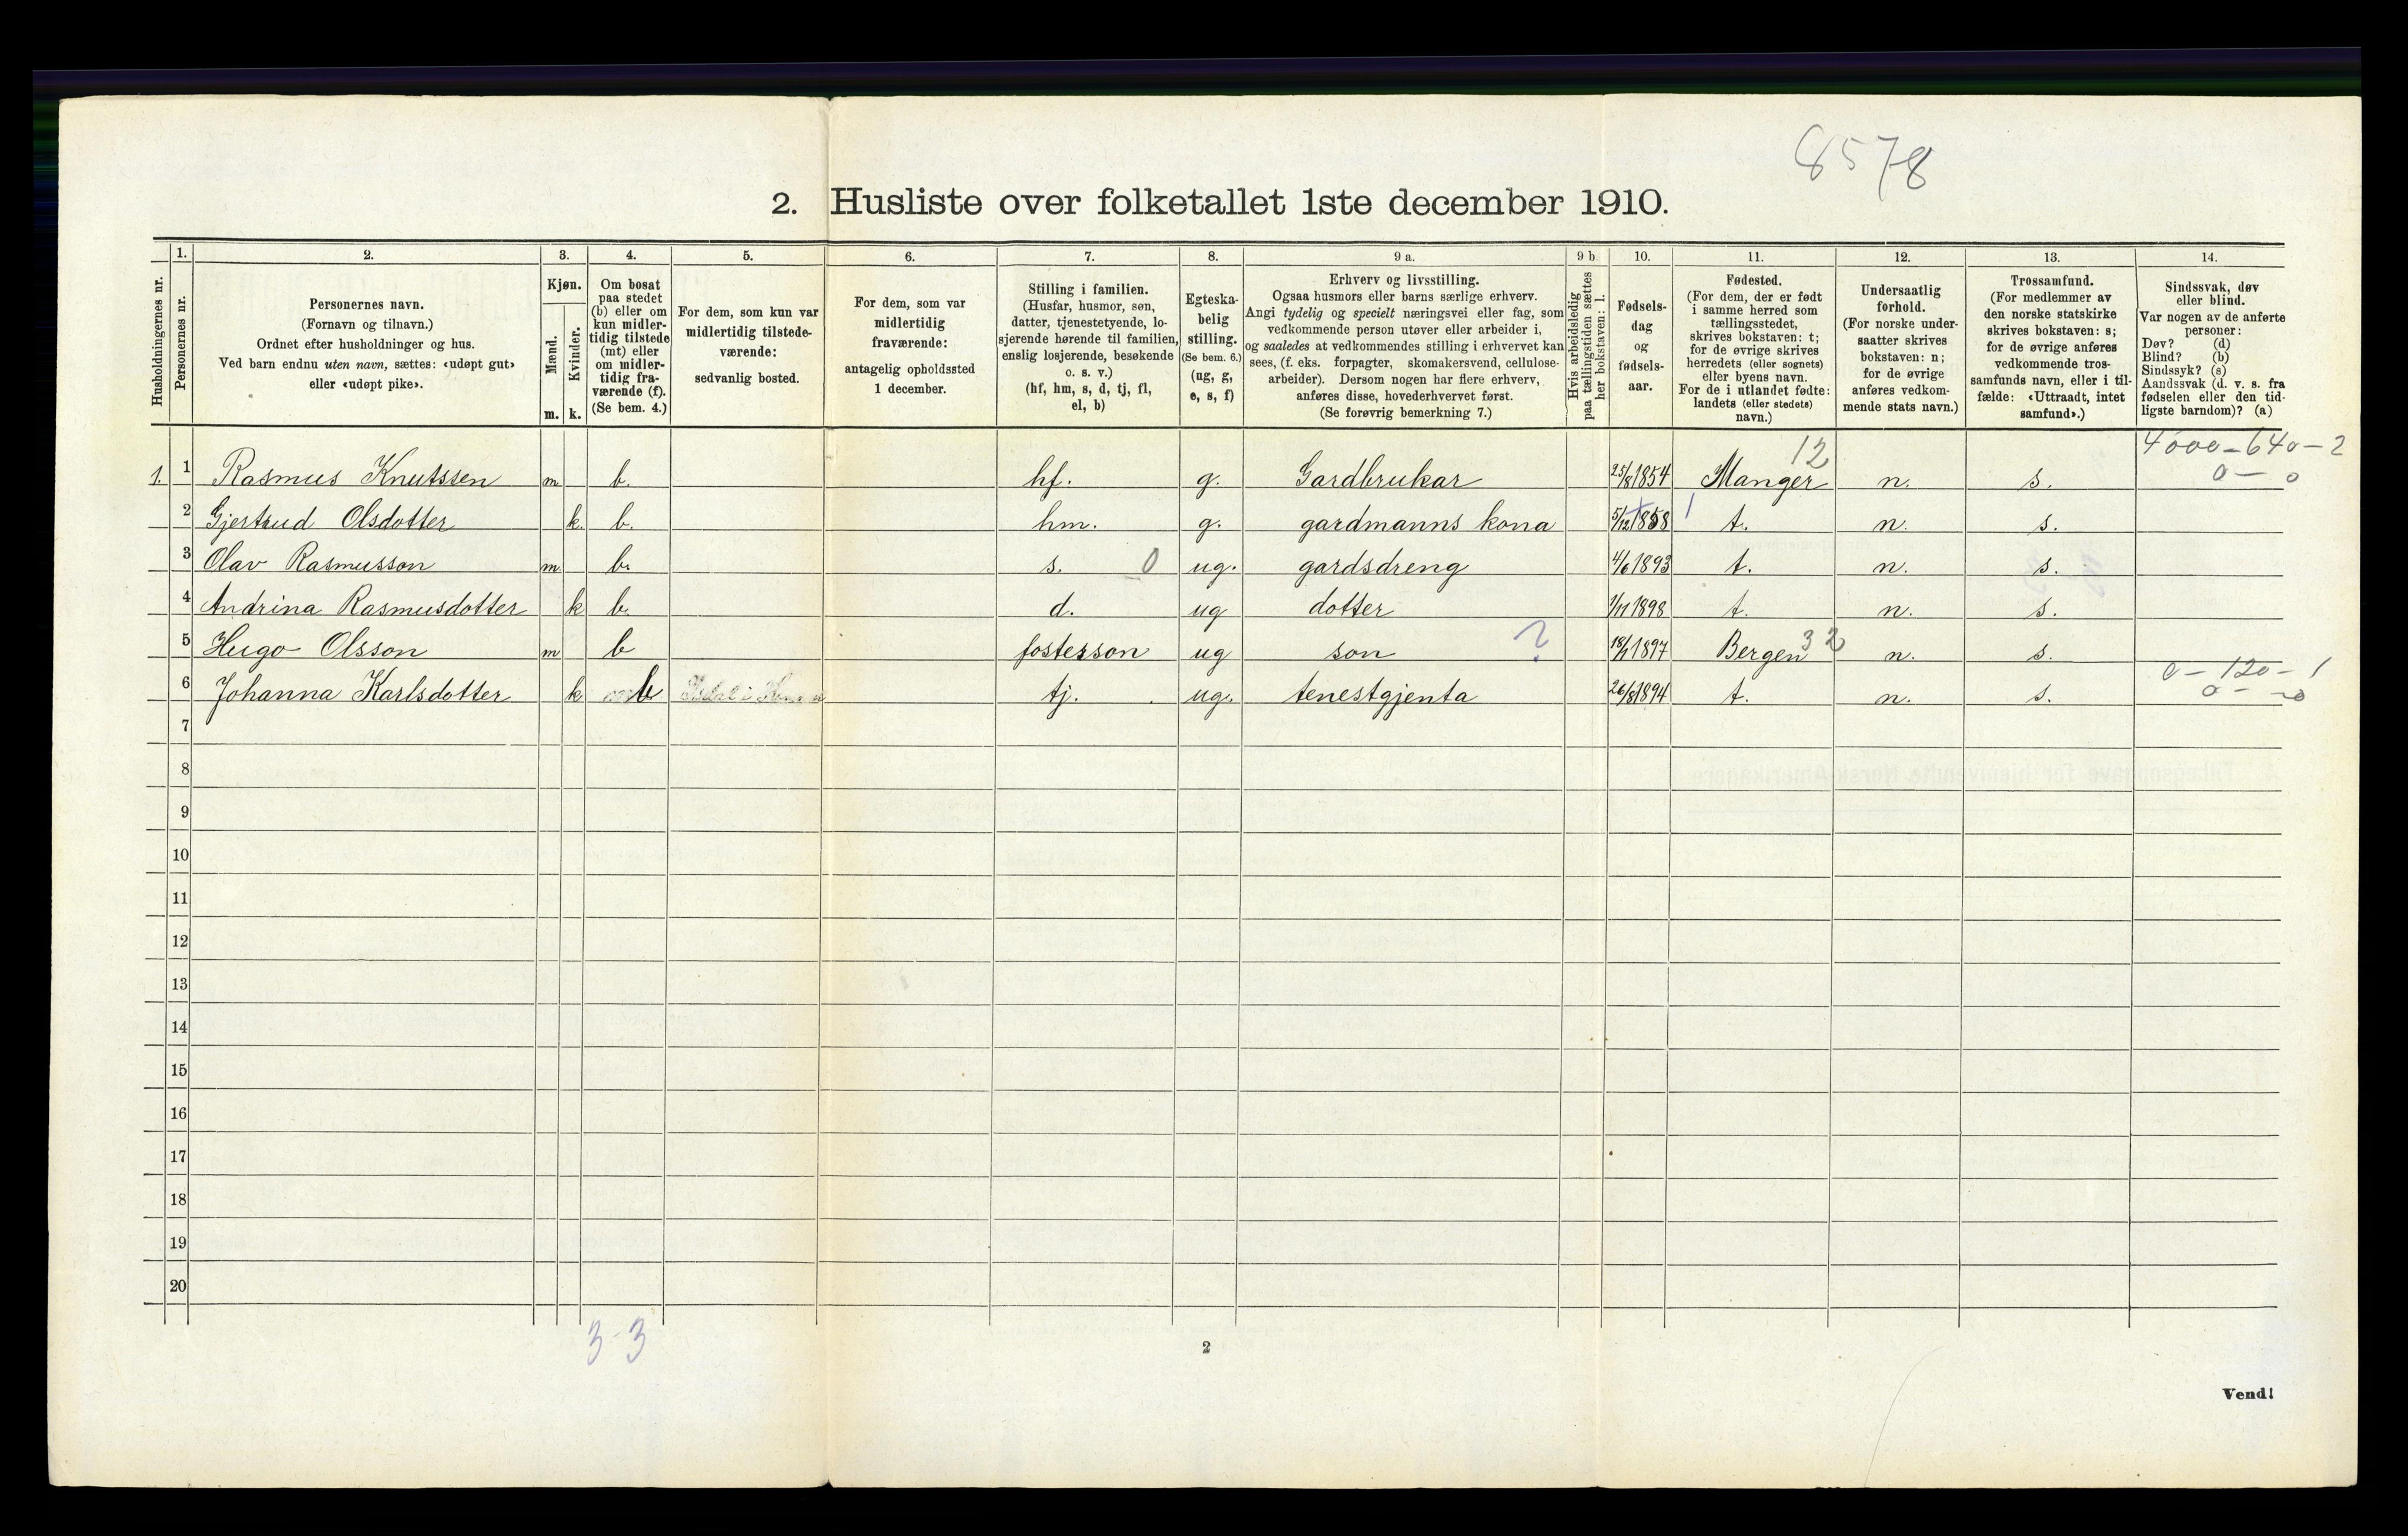 8578
2. Husliste over folketallet 1ste december 1910.
Husholdningernes nr.
1.
Personernes nr.
2.
Personernes navn.
(Fornavn og tilnavn.)
Ordnet efter husholdninger og hus.
Ved barn endnu uten navn, sættes: «udøpt gut»
eller «udøpt pike».
3.
Kjøn.
Mænd.
m.
Kvinder.
k.
4.
Om bosat
paa stedet
(b) eller om
kun midler-
tidig tilstede
(mt) eller
om midler-
tidig fra-
værende (f).
(Se bem. 4.)
5.
For dem, som kun var
midlertidig tilstede-
værende:
sedvanlig bosted.
6.
For dem, som var
midlertidig
fraværende:
antagelig opholdssted
1 december.
7.
Stilling i familien.
(Husfar, husmor, søn,
datter, tjenestetyende, lo-
sjerende hørende til familien,
enslig losjerende, besøkende
o. s. v.)
(hf, hm, s, d, tj, fl,
el, b)
8.
Egteska-
belig
stilling.
(Se bem. 6.)
(ug, g,
e, s, f)
9 a.
Erhverv og livsstilling.
Ogsaa husmors eller barns særlige erhverv.
Angi tydelig og specielt næringsvei eller fag, som
vedkommende person utøver eller arbeider i,
og saaledes at vedkommendes stilling i erhvervet kan
sees, (f. eks. forpagter, skomakersvend, cellulose-
arbeider). Dersom nogen har flere erhverv,
anføres disse, hovederhvervet først.
(Se forøvrig bemerkning 7.)
9 b.
Hvis arbeidsledig
paa tællingstiden sættes
her bokstaven: l.
10.
Fødsels-
dag
og
fødsels-
aar.
11.
Fødested.
(For dem, der er født
i samme herred som
tællingsstedet,
skrives bokstaven: t;
for de øvrige skrives
herredets (eller sognets)
eller byens navn.
For de i utlandet fødte:
landets (eller stedets)
navn.)
12.
Undersaatlig
forhold.
(For norske under-
saatter skrives
bokstaven: n;
for de øvrige
anføres vedkom-
mende stats navn.)
13.
Trossamfund.
(For medlemmer av
den norske statskirke
skrives bokstaven: s;
for de øvrige anføres
vedkommende tros-
samfunds navn, eller i til-
fælde: «Uttraadt, intet
samfund».)
14.
Sindssvak, døv
eller blind.
Var nogen av de anførte
personer:
Døv? (d)
Blind? (b)
Sindssyk? (s)
Aandssvak (d. v. s. fra
fødselen eller den tid-
ligste barndom)? (a)
12 4000-640-2
1. 1 Rasmus Knutssen m b. hf. g. Gardbrukar 25/8 1854 Manger n. s. 0 - 0
2 Gjertrud Olsdotter k. b. hm. g. gardmanns kona 5/12 1858 t. n. s.
3 Olav Rasmusson m b. s. 0 ug. gardsdreng 4/6 1893 t. n. s.
4 Andrina Rasmusdotter k b. d. ug dotter 1/11 1898 t. n. s.
5 Hugo Olsson m b fosterson ug son ? 18/1 1897 Bergen 32 n. s.
0 - 120 - 1
6 Johanna Karlsdotter k b tj. ug. tenestgjenta 26/8 1894 t. n. s. 0 - 0
7
8
9
10
11
12
13
14
15
16
17
18
19
20
3-3
2
Vend!